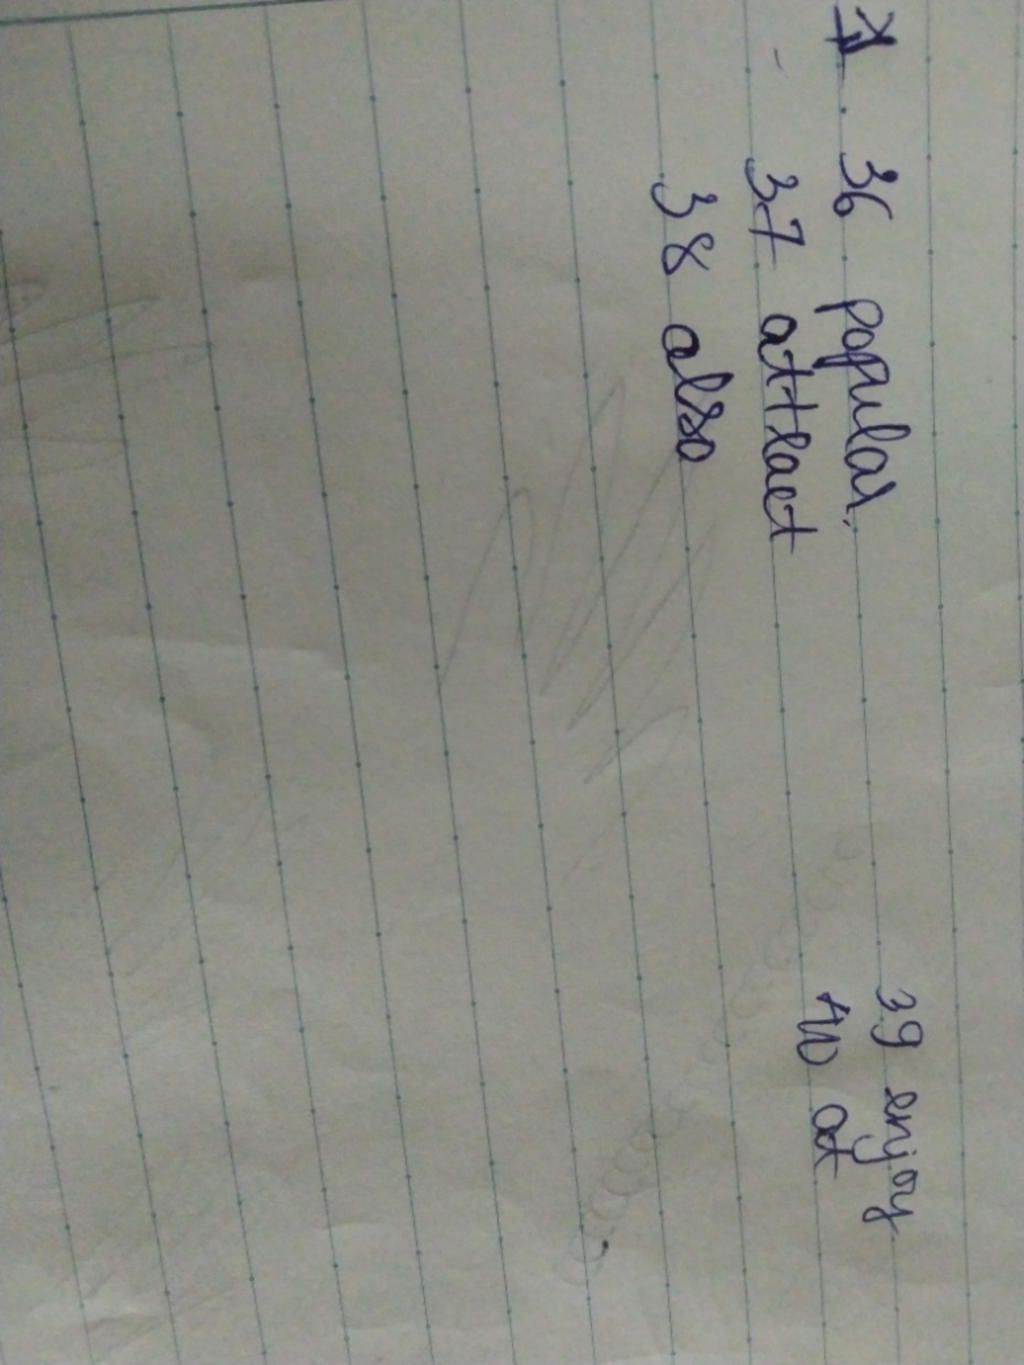 36 popular.
37 attract
38 also
39 enjoy
40 at